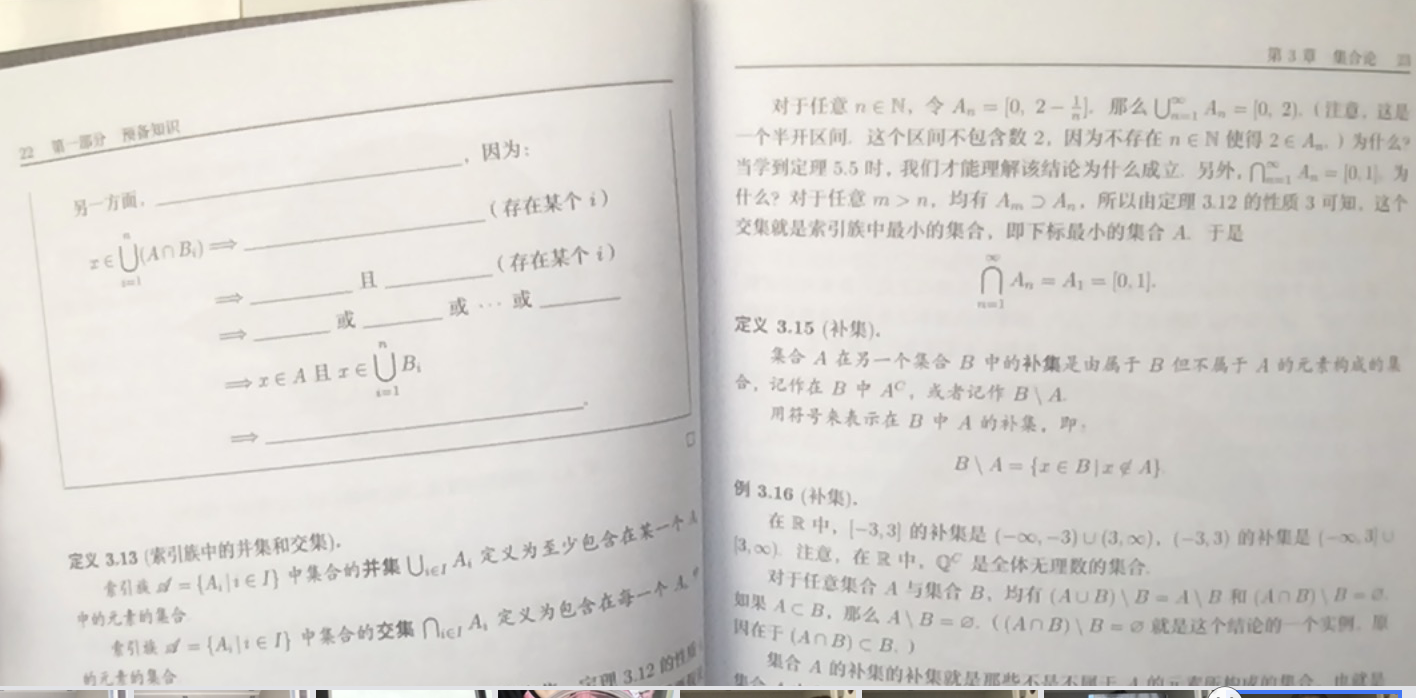 22 第一部分 预备知识
另一方面，____，因为：
x∈⋃ⁿᵢ₌₁(A∩Bᵢ) ⟹ ____（存在某个 i）
⟹ ____ 且 ____（存在某个 i）
⟹ ____ 或 ____ 或 ⋯ 或 ____
⟹ x∈A 且 x∈⋃ⁿᵢ₌₁ Bᵢ
⟹ ____.
□
定义 3.13 (索引族中的并集和交集).
索引族 𝒜 = {Aᵢ|i∈I} 中集合的并集 ⋃ᵢ∈I Aᵢ 定义为至少包含在某一个 A
中的元素的集合
索引族 𝒜 = {Aᵢ|i∈I} 中集合的交集 ⋂ᵢ∈I Aᵢ 定义为包含在每一个 Aᵢ 中
的元素的集合
定理 3.12 的性质
第 3 章 集合论 23
对于任意 n∈ℕ，令 Aₙ = [0, 2−1/n]. 那么 ⋃^∞ₙ₌₁ Aₙ = [0, 2).（注意，这是
一个半开区间. 这个区间不包含数 2，因为不存在 n∈ℕ 使得 2∈Aₙ.）为什么?
当学到定理 5.5 时，我们才能理解该结论为什么成立. 另外，⋂^∞ₙ₌₁ Aₙ = [0,1]. 为
什么? 对于任意 m > n，均有 Aₘ ⊃ Aₙ，所以由定理 3.12 的性质 3 可知，这个
交集就是索引族中最小的集合，即下标最小的集合 A. 于是
⋂^∞ₙ₌₁ Aₙ = A₁ = [0,1].
定义 3.15 (补集).
集合 A 在另一个集合 B 中的补集是由属于 B 但不属于 A 的元素构成的集
合，记作在 B 中 Aᶜ，或者记作 B \ A.
用符号来表示在 B 中 A 的补集，即：
B \ A = {x∈B|x∉A}.
例 3.16 (补集).
在 ℝ 中，[−3,3] 的补集是 (−∞,−3)∪(3,∞)，(−3,3) 的补集是 (−∞,3]∪
[3,∞). 注意，在 ℝ 中，ℚᶜ 是全体无理数的集合.
对于任意集合 A 与集合 B，均有 (A∪B)\B = A\B 和 (A∩B)\B = ∅.
如果 A⊂B，那么 A\B = ∅.（(A∩B)\B = ∅ 就是这个结论的一个实例，原
因在于 (A∩B)⊂B.）
集合 A 的补集的补集就是那些不是不属于 A 的元素所构成的集合，也就是